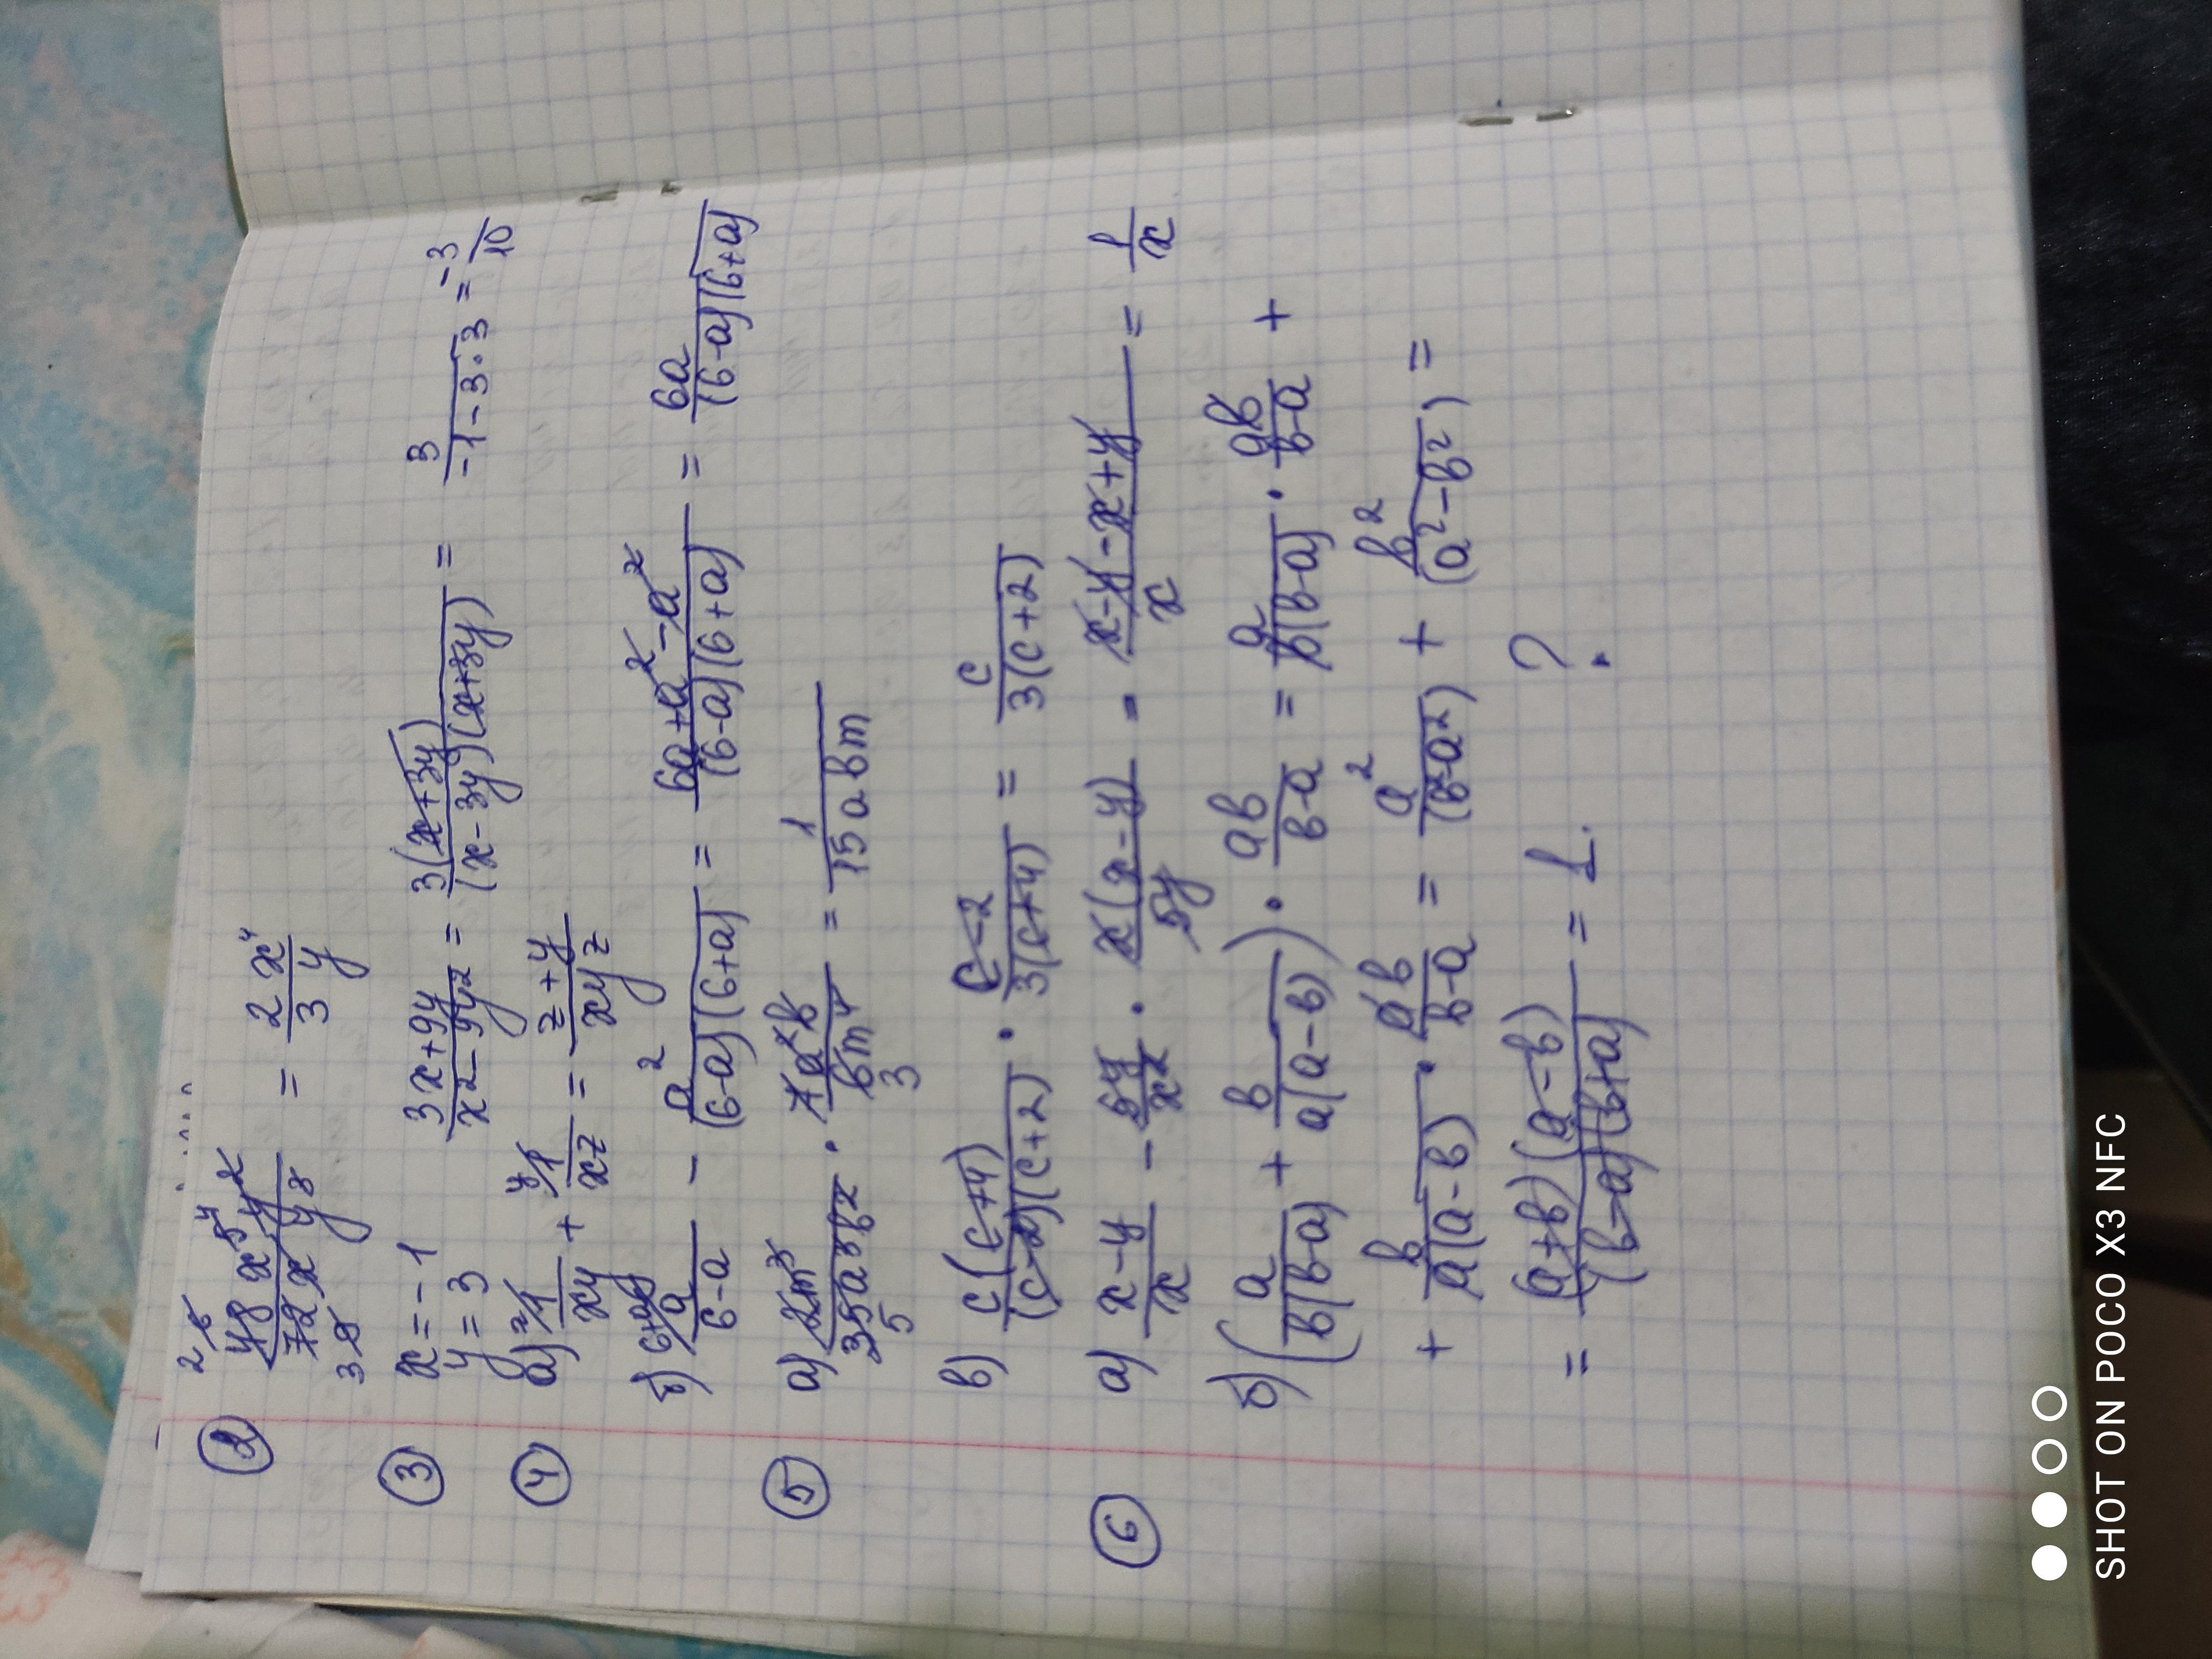 ② 48x⁵y² / 72xy³ = 2x⁴ / 3y
③ x = -1
y = 3
3x+9y / x²-9y² = 3(x+3y) / (x-3y)(x+3y) = 3 / -1-3·3 = -3/10
④ а) 1/xy + 1/xz = z+y / xyz
б) a / 6-a - a² / (6-a)(6+a) = 6a+a²-a² / (6-a)(6+a) = 6a / (6-a)(6+a)
⑤ а) 2m³ / 35a³b² · 7a²b / 6m⁴ = 1 / 15abm
в) c(c+4) / (c-2)(c+2) · c-2 / 3(c+4) = c / 3(c+2)
⑥ а) x-y / x - 5y / x² · x(x-y) / 5y = x-y-x+y / x = 1/x
б) (a / b(b-a) + b / a(a-b)) · ab / b-a = a / b(b-a) · ab / b-a +
+ b / a(a-b) · ab / b-a = a² / (b-a²) + b² / (a²-b²) =
= (a+b)(a-b) / (b-a)(b+a) = 1. ?
SHOT ON POCO X3 NFC